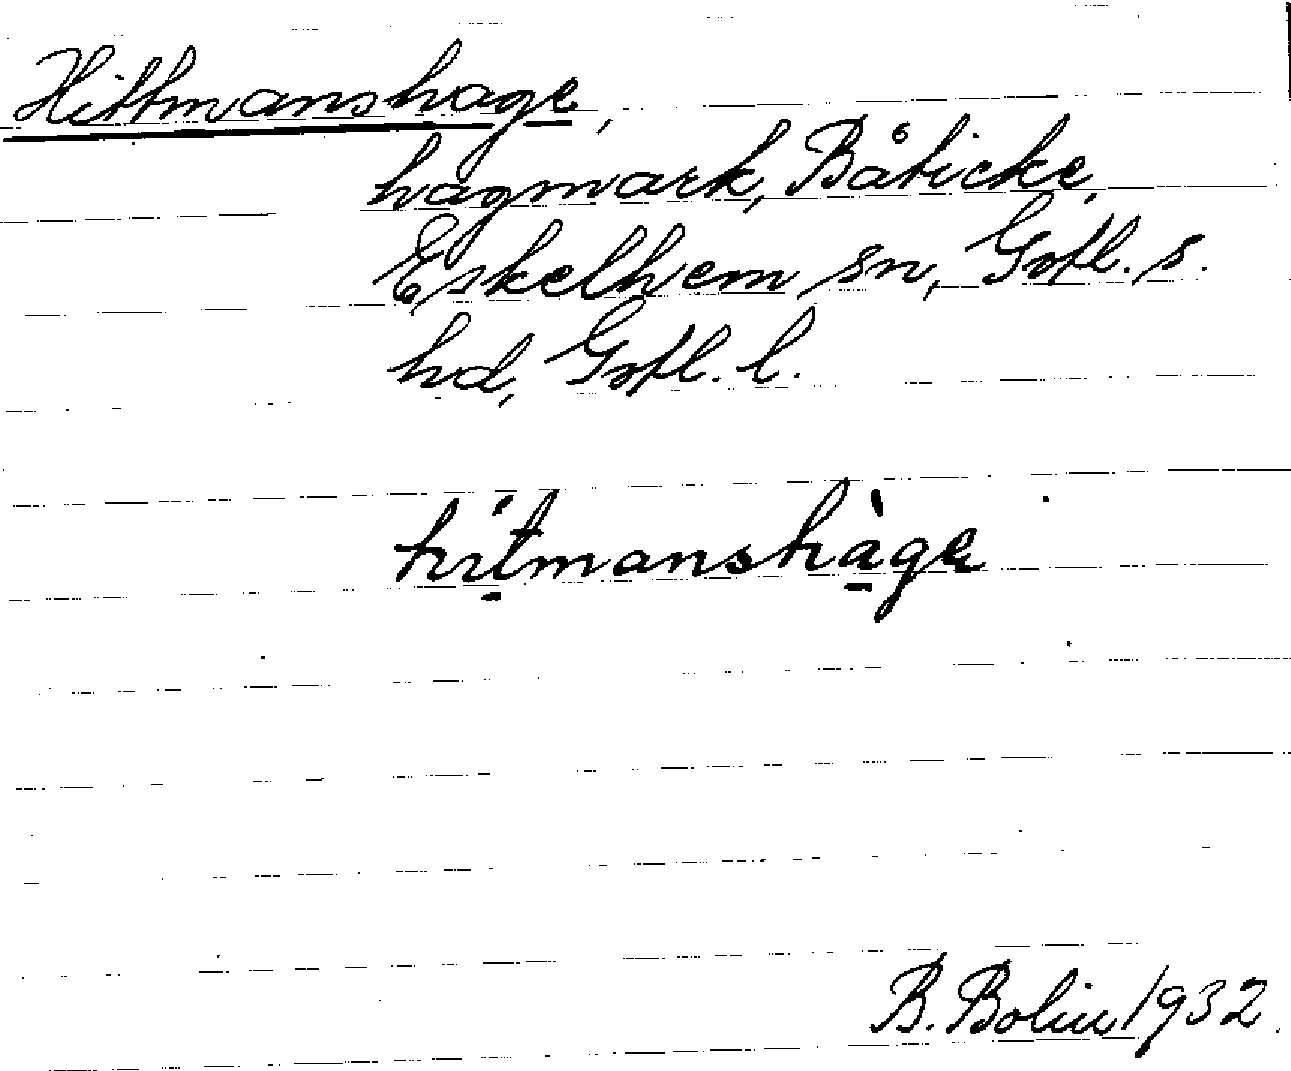 Hittmanshage,
hagmark, Båticke,
Eskelhem sn, Gotl. s.
hd, Gotl. l.
hı̣́tmanshạ̀ge
B. Bolin 1932.